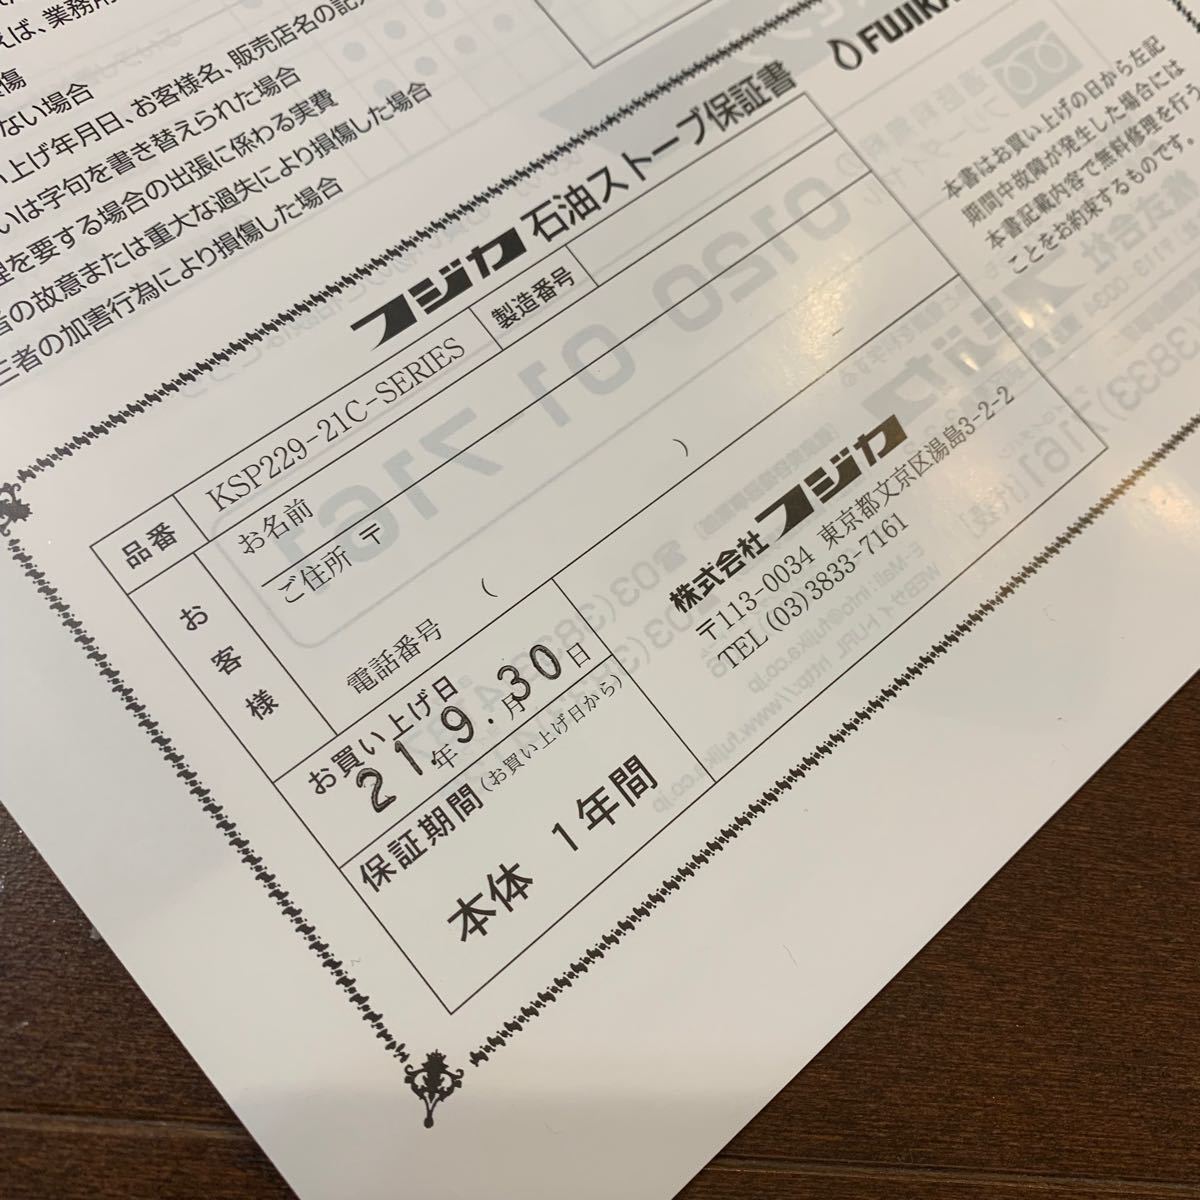 えば、業務用
損傷
ない場合
い上げ年月日、お客様名、販売店名の記入
いは字句を書き替えられた場合
理を要する場合の出張に係わる実費
者の故意または重大な過失により損傷した場合
三者の加害行為により損傷した場合
FUJIKA
フジカ 石油ストーブ保証書
本書はお買い上げの日から左記
期間中故障が発生した場合には
本書記載内容で無料修理を行う
ことをお約束するものです。
品番 KSP229-21C-SERIES 製造番号
お客様
お名前
ご住所 〒
電話番号 ( )
お買い上げ日
21年 9.月 30日
保証期間(お買い上げ日から)
本体 1年間
株式会社フジカ
〒113-0034 東京都文京区湯島3-2-2
TEL (03)3833-7161